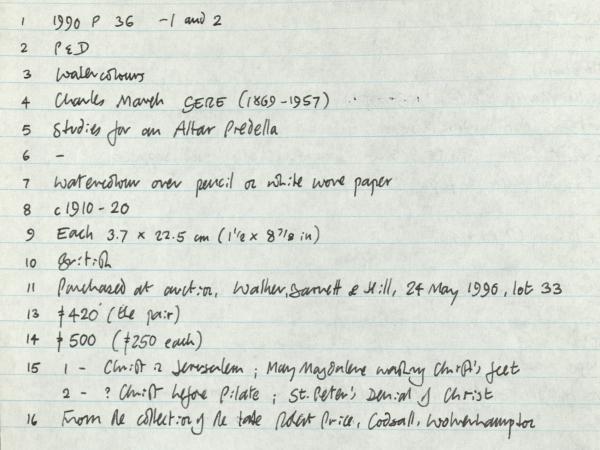 1 1990 P 36 -1 and 2
2 P&D
3 Watercolours
4 Charles March GERE (1869-1957)
5 Studies for an Altar Predella
6 -
7 Watercolour over pencil on white wove paper
8 c1910-20
9 Each 3.7 x 22.5 cm (1 1/2 x 8 7/8 in)
10 British
11 Purchased at auction, Walker, Barnett & Hill, 24 May 1990, lot 33
13 £420 (the pair)
14 £500 (£250 each)
15 1 - Christ in Jerusalem ; Mary Magdalene washing Christ's feet
2 - ? Christ before Pilate ; St. Peter's Denial of Christ
16 From the collection of the late Robert Price, Codsall, Wolverhampton